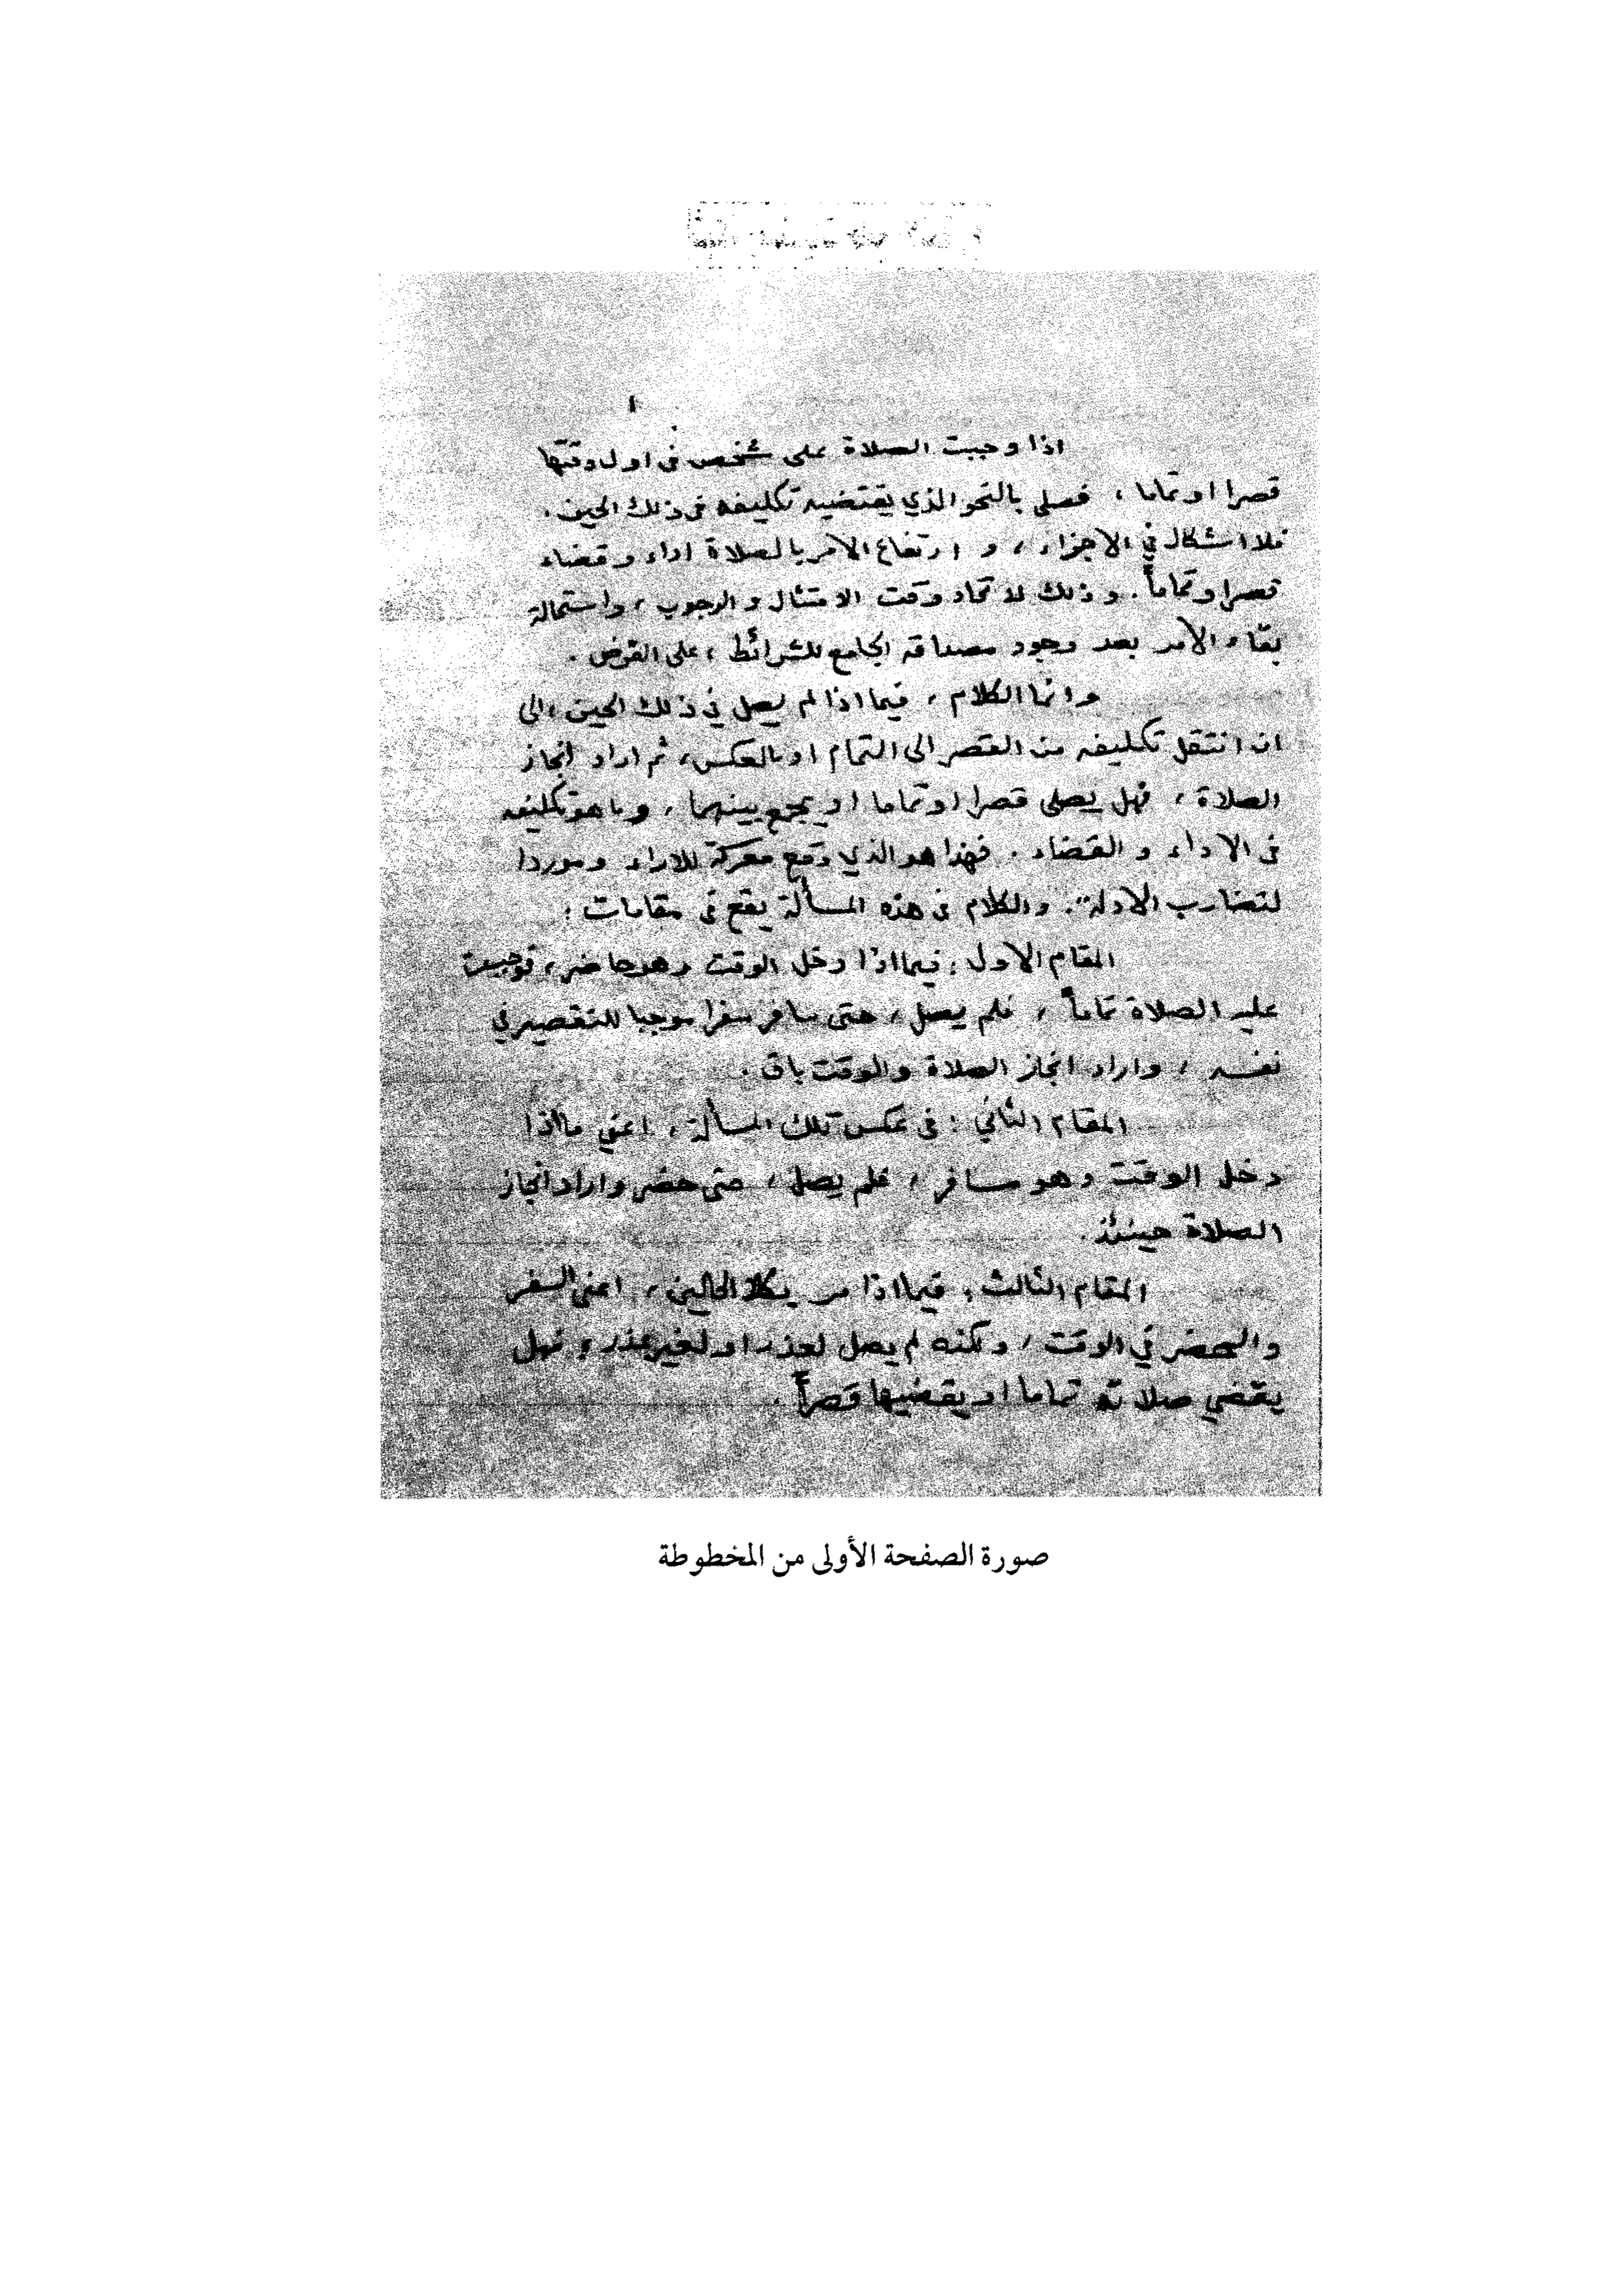 ١
اذا وجبت الصلاة على شخص في اول وقتها
قصرا او تماما ، فصلى بالنحو الذي يقتضيه تكليفه في ذلك الحين .
فلا اشكال في الاجزاء ، و ارتفاع الامر بالصلاة اداء و قضاء
قصرا و تماماً . و ذلك لاتحاد وقت الامتثال و الوجوب ، واستحالة
بقاء الأمر بعد وجود مصداقه الجامع للشرائط ، على الفرض .
وانما الكلام ، فيما اذا لم يصل في ذلك الحين ، الى
ان انتقل تكليفه من القصر الى التمام او بالعكس ، ثم اراد انجاز
الصلاة ، فهل يصلي قصرا او تماما او يجمع بينهما ، وما هو تكليفه
في الاداء و القضاء . فهذا هو الذي وقع معركة للاراء وموردا
لتضارب الادلة . والكلام في هذه المسألة يقع في مقامات :
المقام الاول : فيما اذا دخل الوقت وهو حاضر ، فوجبت
عليه الصلاة تماماً ، فلم يصل ، حتى سافر سفرا موجبا للتقصير في
نفسه ، واراد انجاز الصلاة والوقت باق .
المقام الثاني : في عكس تلك المسألة ، اعني ما اذا
دخل الوقت وهو مسافر ، فلم يصل ، حتى حضر واراد انجاز
الصلاة حينئذ .
المقام الثالث : فيما اذا مر بكلا الحالين ، اعني السفر
والحضر في الوقت ، ولكنه لم يصل لعذر او لغير عذر ، فهل
يقضي صلاته تماما او يقضيها قصراً .
صورة الصفحة الأولى من المخطوطة